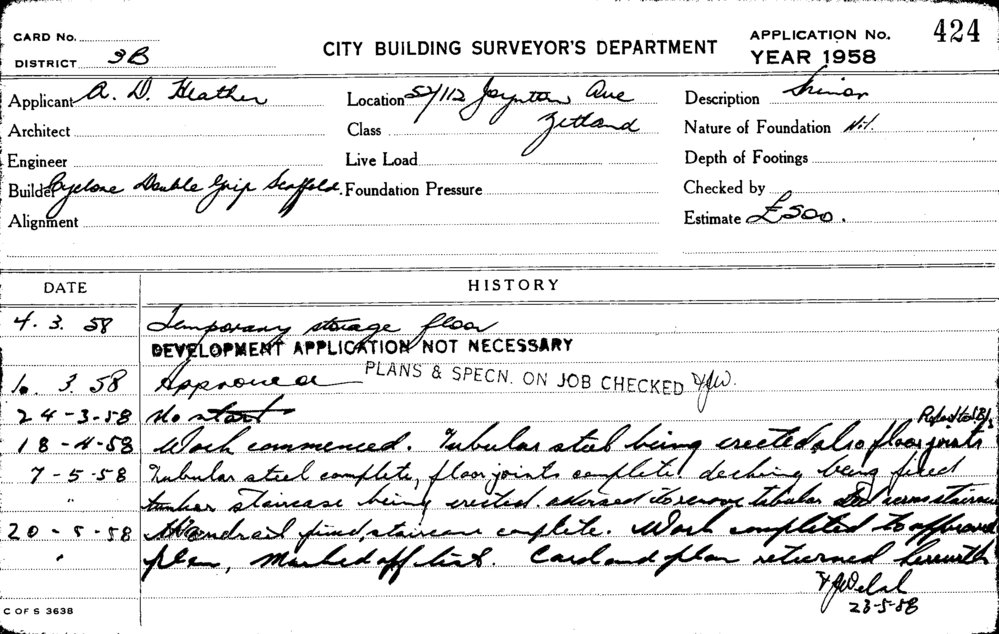 CARD No.
DISTRICT 3B
CITY BUILDING SURVEYOR'S DEPARTMENT
APPLICATION No. 424
YEAR 1958
Applicant A. D. Heather
Location 52/112 Joynton Ave
Zetland
Description Minor
Architect
Class
Nature of Foundation Nil.
Engineer
Live Load
Depth of Footings
Builder Cyclone Double Grip Scaffolds.
Foundation Pressure
Checked by
Alignment
Estimate £500.
DATE HISTORY
4. 3. 58 Temporary storage floor
DEVELOPMENT APPLICATION NOT NECESSARY
10. 3. 58 Approved PLANS & SPECN. ON JOB CHECKED
24-3-58 No start
18-4-58 Work commenced. Tubular steel being erected also floor joists
7-5-58 Tubular steel complete, floor joists complete decking being fixed
" timber staircase being erected. advised to remove tubular across staircase
20-5-58 Handrail fixed, staircase complete. Work completed to approved
" plan, marked off list. Card and plan returned herewith
23-5-58
C OF S 3638